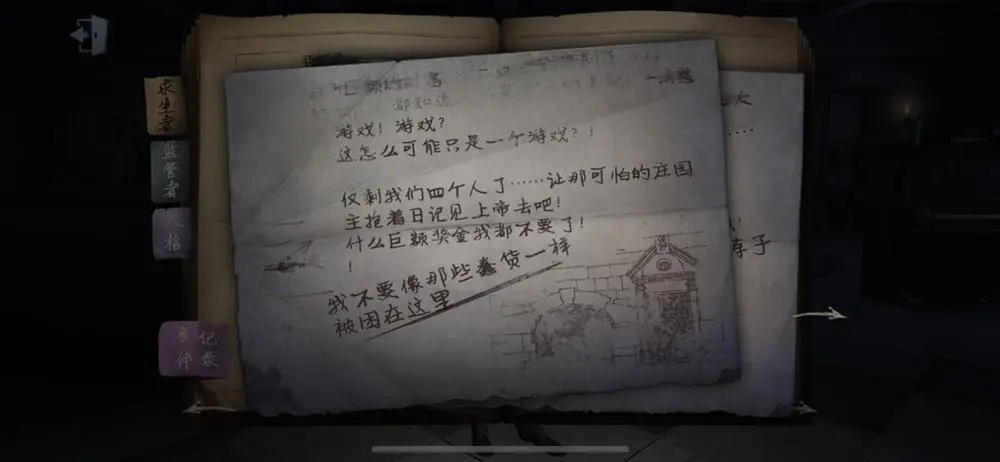 求生者
监管者
都知道
游戏！游戏？
这怎么可能只是一个游戏？！
仅剩我们四个人了……让那可怕的庄园
主抱着日记见上帝去吧！
什么巨额奖金我都不要了！
！
我不要像那些蠢货一样
被困在这里